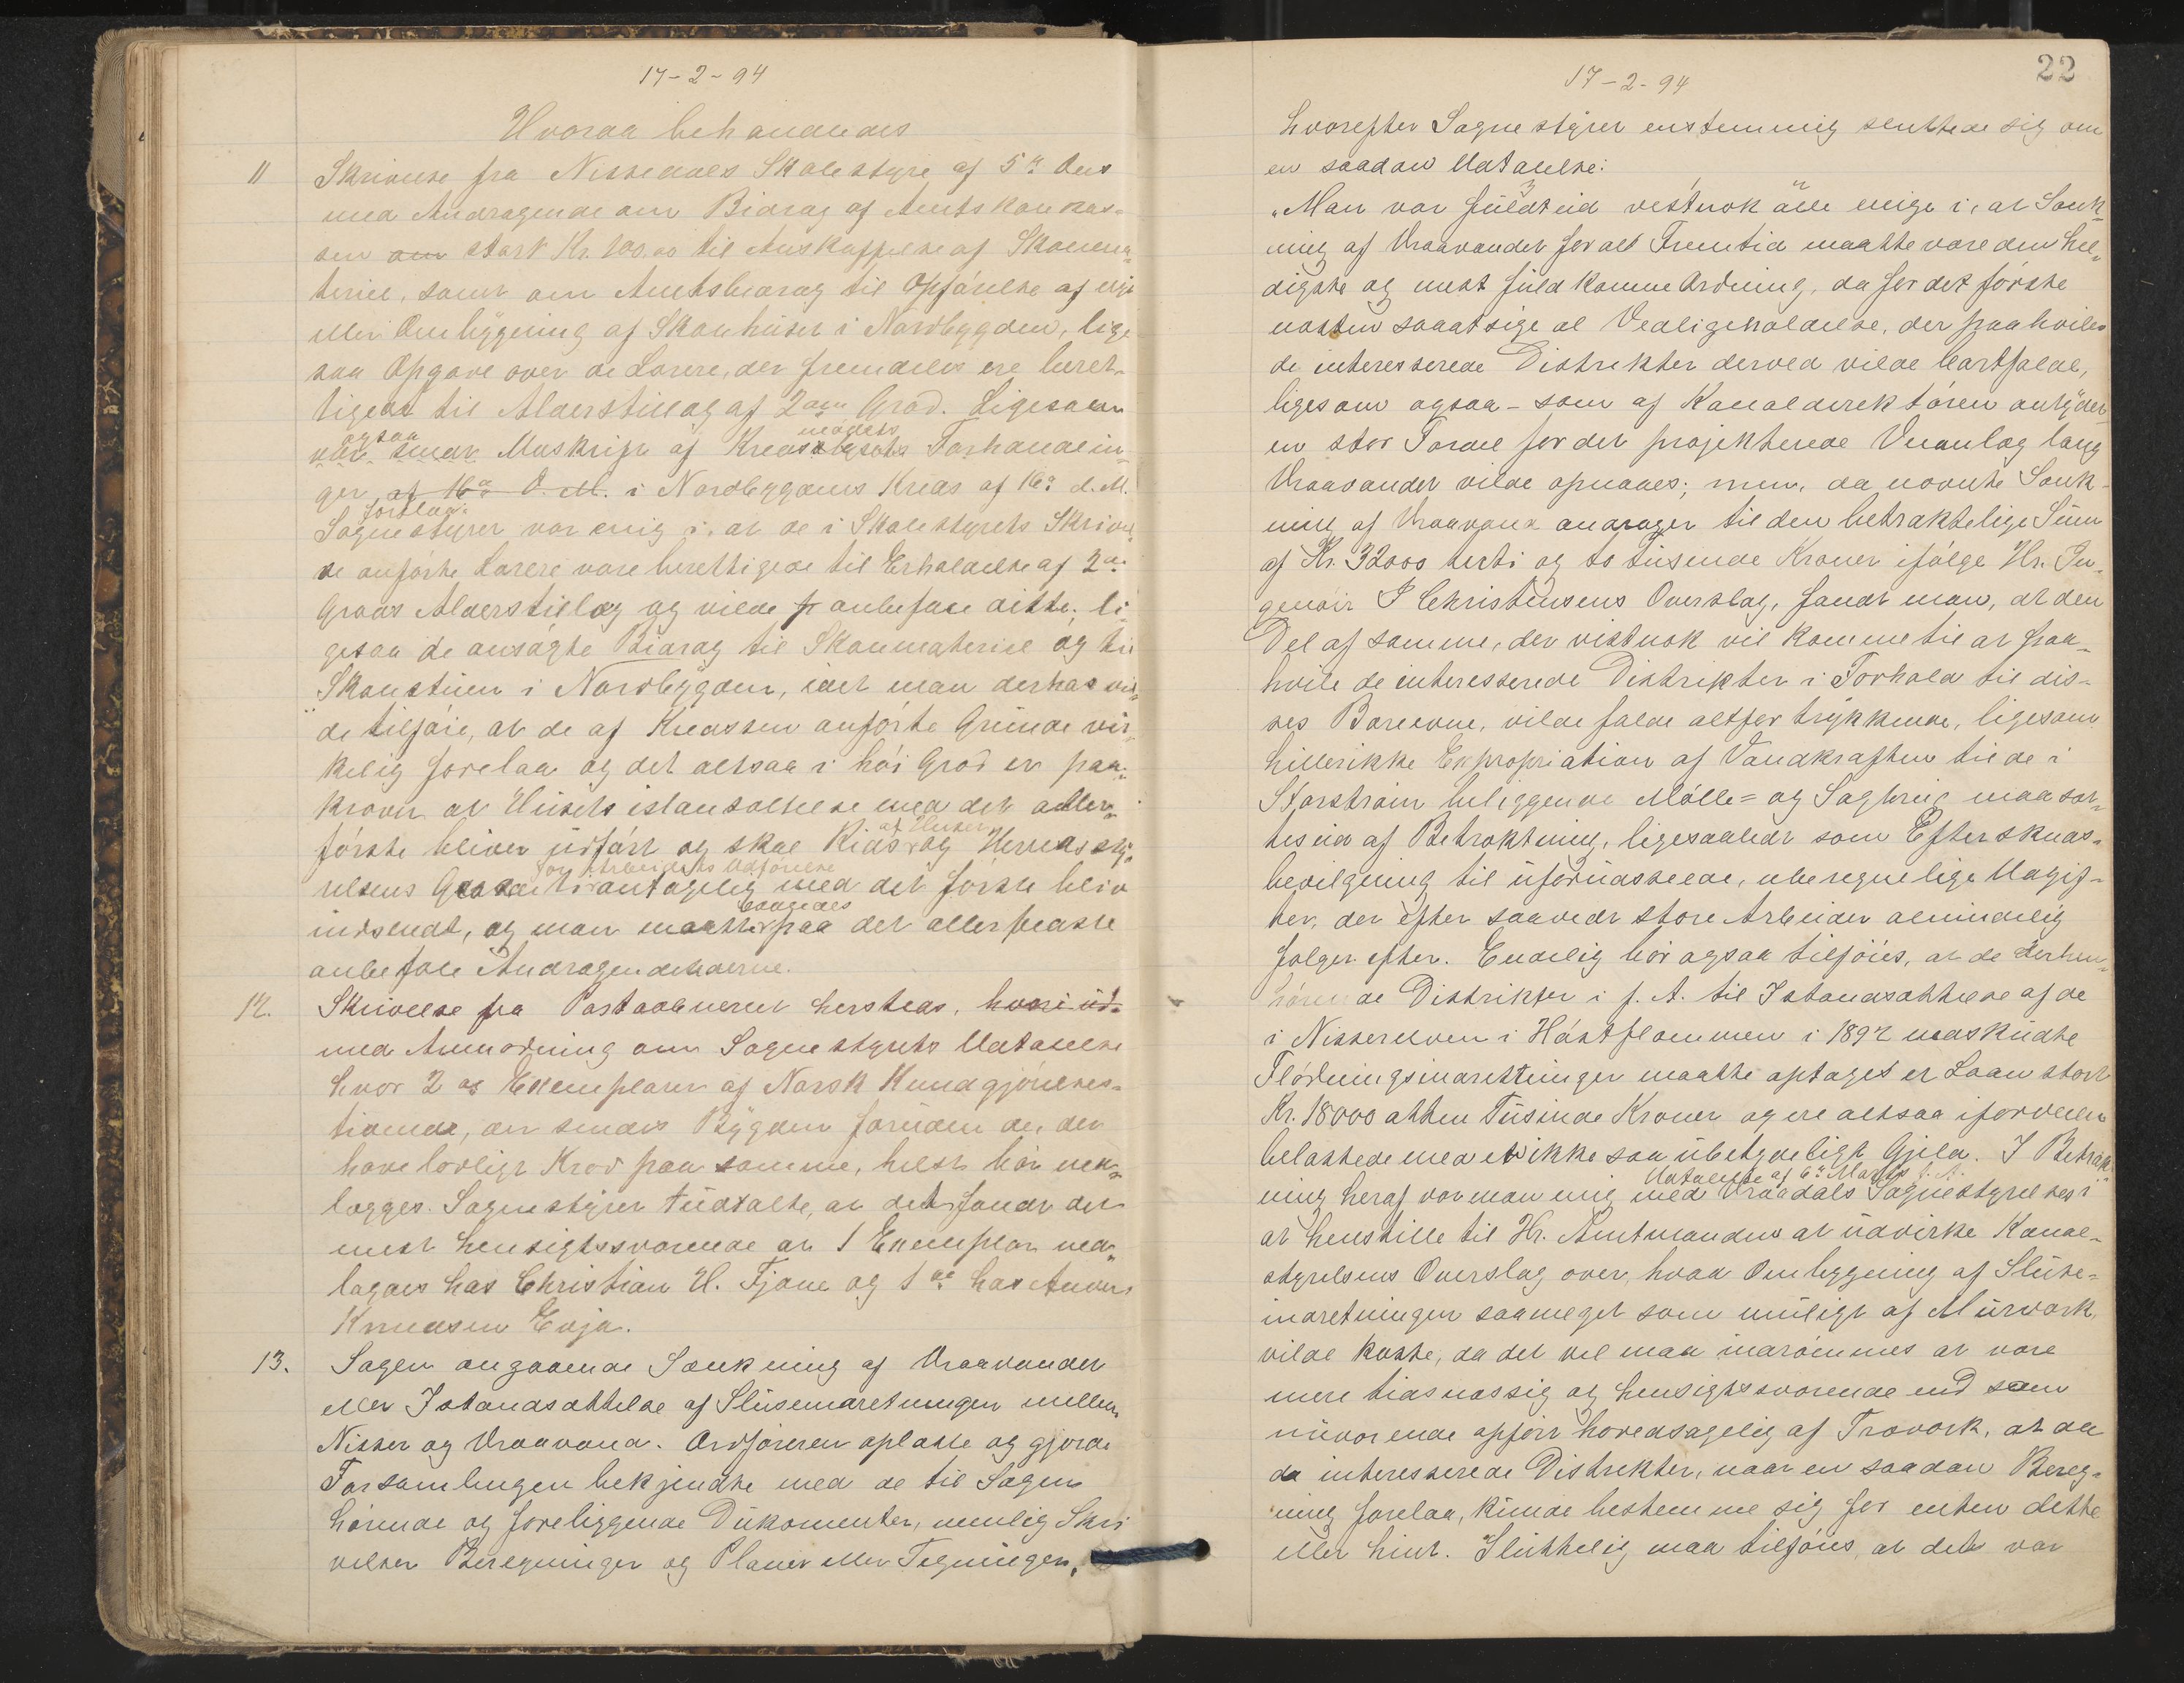 17-2-94
Hvorda behandledes
11 Skrivelse fra Nissedals Skolestyre af 5te dens
med Andragende om Bidrag af Amtsskolekas-
sen om stort Kr. 100.00 til Anskaffelse af Skolema-
teriel, samt om Amtsbidrag til Opførelse af nyt
eller Ombygging af Skolehuset i Nordbygden, lige-
saa Opgave over de Lærere, der fremdeles ere beret-
tigede til Alderstillæg af 2den Grad. Ligesom
også
mødets
var Afskrift af Kredsens Forhandlin-
ger, af 16de d. M. i Nordbygdens Kreds af 16de d. M.
forelagt
Sognestyret var enig i, at de i Skolestyrets Skrivel-
se anførte Lærere være berettigede til Erholdelse af 2den
Grads Alderstillæg og vilde anbefale dette, li-
gesaa de ansøgte Bidrag til Skolemateriel og til
Skolestuen i Nordbygden, idet man derhos vil-
de tilføie, at de af Kredsen anførte Grunde vir-
kelig forelaa og det altsaa i høi Grad er paa-
krævet at Husets istandsættelse med det aller-
af Huset
første bliver udført og skal Kreds og Herredssty-
for Arbeidets Udførelse
relsens Garanti antagelig med det første bliv
saagodes
indsendt, og man maatte paa det allerbedste
anbefale Andragenderne.
12. Skrivelse fra Postaabneren Lersteds, hvori ud-
med Anmodning om Sognestyrets Udtalelse
hvor 2 Exemplarer af Norsk Kundgjørelses-
tidende, der sendes Bygden foruden de, der
have lovligt Krav paa samme, helst bør ned-
lægges. Sognestyret udtalte, at det fandt det
mest hensigtssvarende at 1 Exemplar ned-
lagdes hos Christian H. Tjone og 1 do hos Anders
Knudsen Evja.
13. Sagen angaaende Sænkning af Vraavandet
eller Istandsættelse af Sluseindretningen mellem
Nisser og Vraavand. Ordføreren oplæste og gjorde
Forsamlingen bekjendte med de til Sagen
hørende og foreliggende Dokumenter, nemlig Skri-
velser Beregninger og Planer eller Tegninger,
17-2-94
22
hvorefter Sognestyret enstemmig sluttede sig om
en saadan Udtalelse:
"Man var fuldt ud vistnok alle enige i, at Sænk-
ning af Vraavandet for alt Fremtid maatte være den hel-
digste og mest fuldkomne Ordning, da for det første
næsten saaatsige al Vedligeholdelse, der paahviler
de interesserede Distrikter derved vilde bortfalde,
ligesom ogsaa - som af Kanaldirektøren antydet
en stor Fordel for det projekterede Veianlæg lang
Vraavandet vilde opnaaes; men, da nævnte Sænk-
ning af Vraavand andrager til den betraktelige Sum
af Kr. 32000 tretti og to tusende Kroner ifølge Hr. In-
geniør I Christensens Overslag, fandt man, at den
Del af samme, der vistnok vil komme til at paa-
hvile de interesserede Distrikter i Forhold til dis-
ses Bæreevne, vilde falde altfor trykkende, ligesom
hellerikke Expropriation af Vandkraften til de i
Storstrøm beliggende Mølle- og Sagbrug maa sæt-
tes ud af Betraktning, ligesaalidt som Efterskuds-
bevilgning til uforudseede, uberegnelige Udgif-
ter, der efter saavidt store Arbeider almindelig
følger efter. Endelig bør ogsaa tilføies, at de derhen-
hørende Distrikter i f. A. til Istandsættelse af de
i Nisserelven i Høstflommen i 1892 nedskudte
Flødningsindretninger maatte optaget et Laan stort
Kr. 18000 atten Tusinde Kroner og ere altsaa iforveien
belastede med et ikke saa ubetydeligt Gjeld. I Betrak-
Udtalelse af 6te Marts f. A.
ning heraf var man enig med Vraadals Sognestyrelses i
at henstille til Hr. Amtmanden at udvirke Kanal-
styrelsens Overslag over, hvad Ombygging af Sluse-
indretningen saameget som muligt af Murværk,
vilde koste, da det vel maa indrømmes at være
mere tidsmæssig og hensigtssvarende end som
nuværende opført hovedsagelig af Træværk, at da
de interesserede Distrikter, naar en saadan Bereg-
ning forelaa, kunde bestemme sig for enten dette
eller hint. Sluttelig maa tilføies, at det var